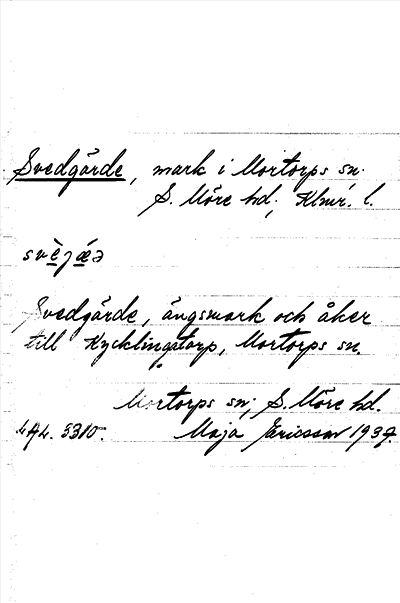 Svedgärde, mark i Mortorps sn.
S. Möre hd., Klmr. l.
svὲjǽə
Svedgärde, ängsmark och åker
till Kycklingatorp, Mortorps sn.
Mortorps sn; S. Möre hd.
4A4. 5310. Maja Ericsson 1937.